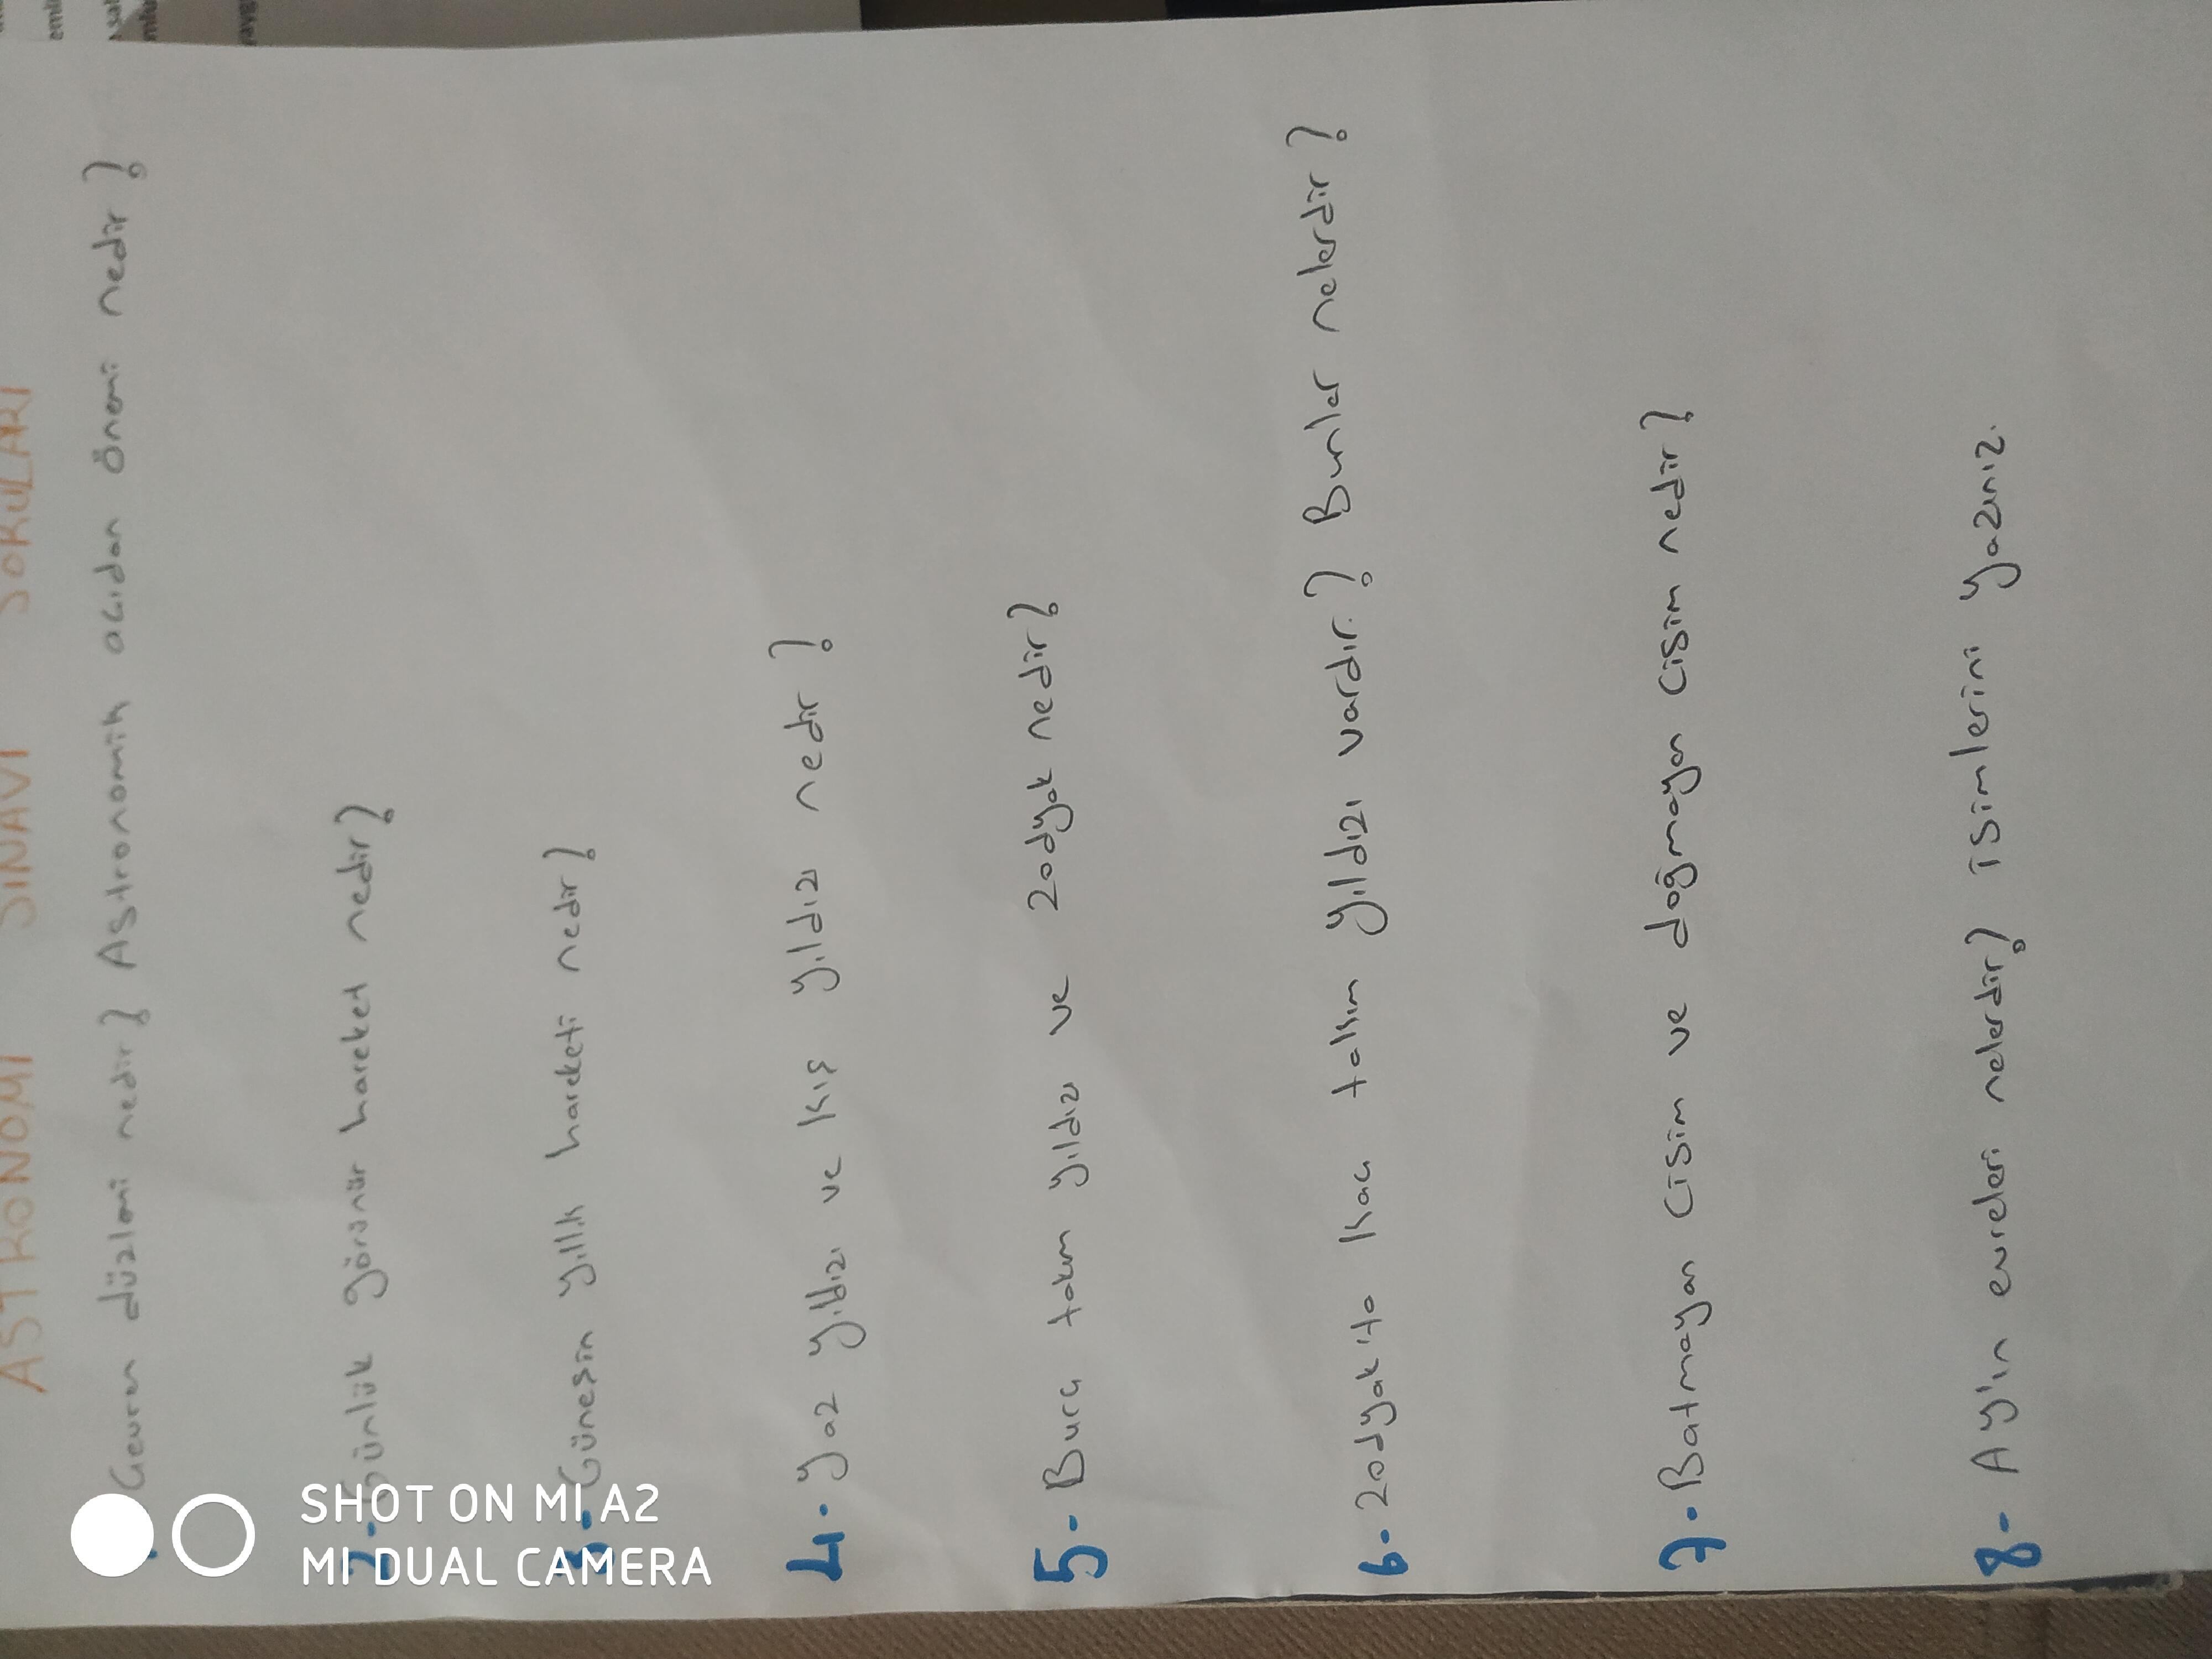 ASTRONOMİ SINAVI SORULARI
Çevren düzlemi nedir? Astronomik açıdan önemi nedir?
2- Günlük görünür hareket nedir?
3- Güneşin yıllık hareketi nedir?
4- Yaz yıldızı ve kış yıldızı nedir?
5- Burç takım yıldızı ve zodyak nedir?
6- zodyak'ta kaç takım yıldızı vardır? Bunlar nelerdir?
7- Batmayan cisim ve doğmayan cisim nedir?
8- Ay'ın evreleri nelerdir? isimlerini yazınız.
SHOT ON MI A2
MI DUAL CAMERA